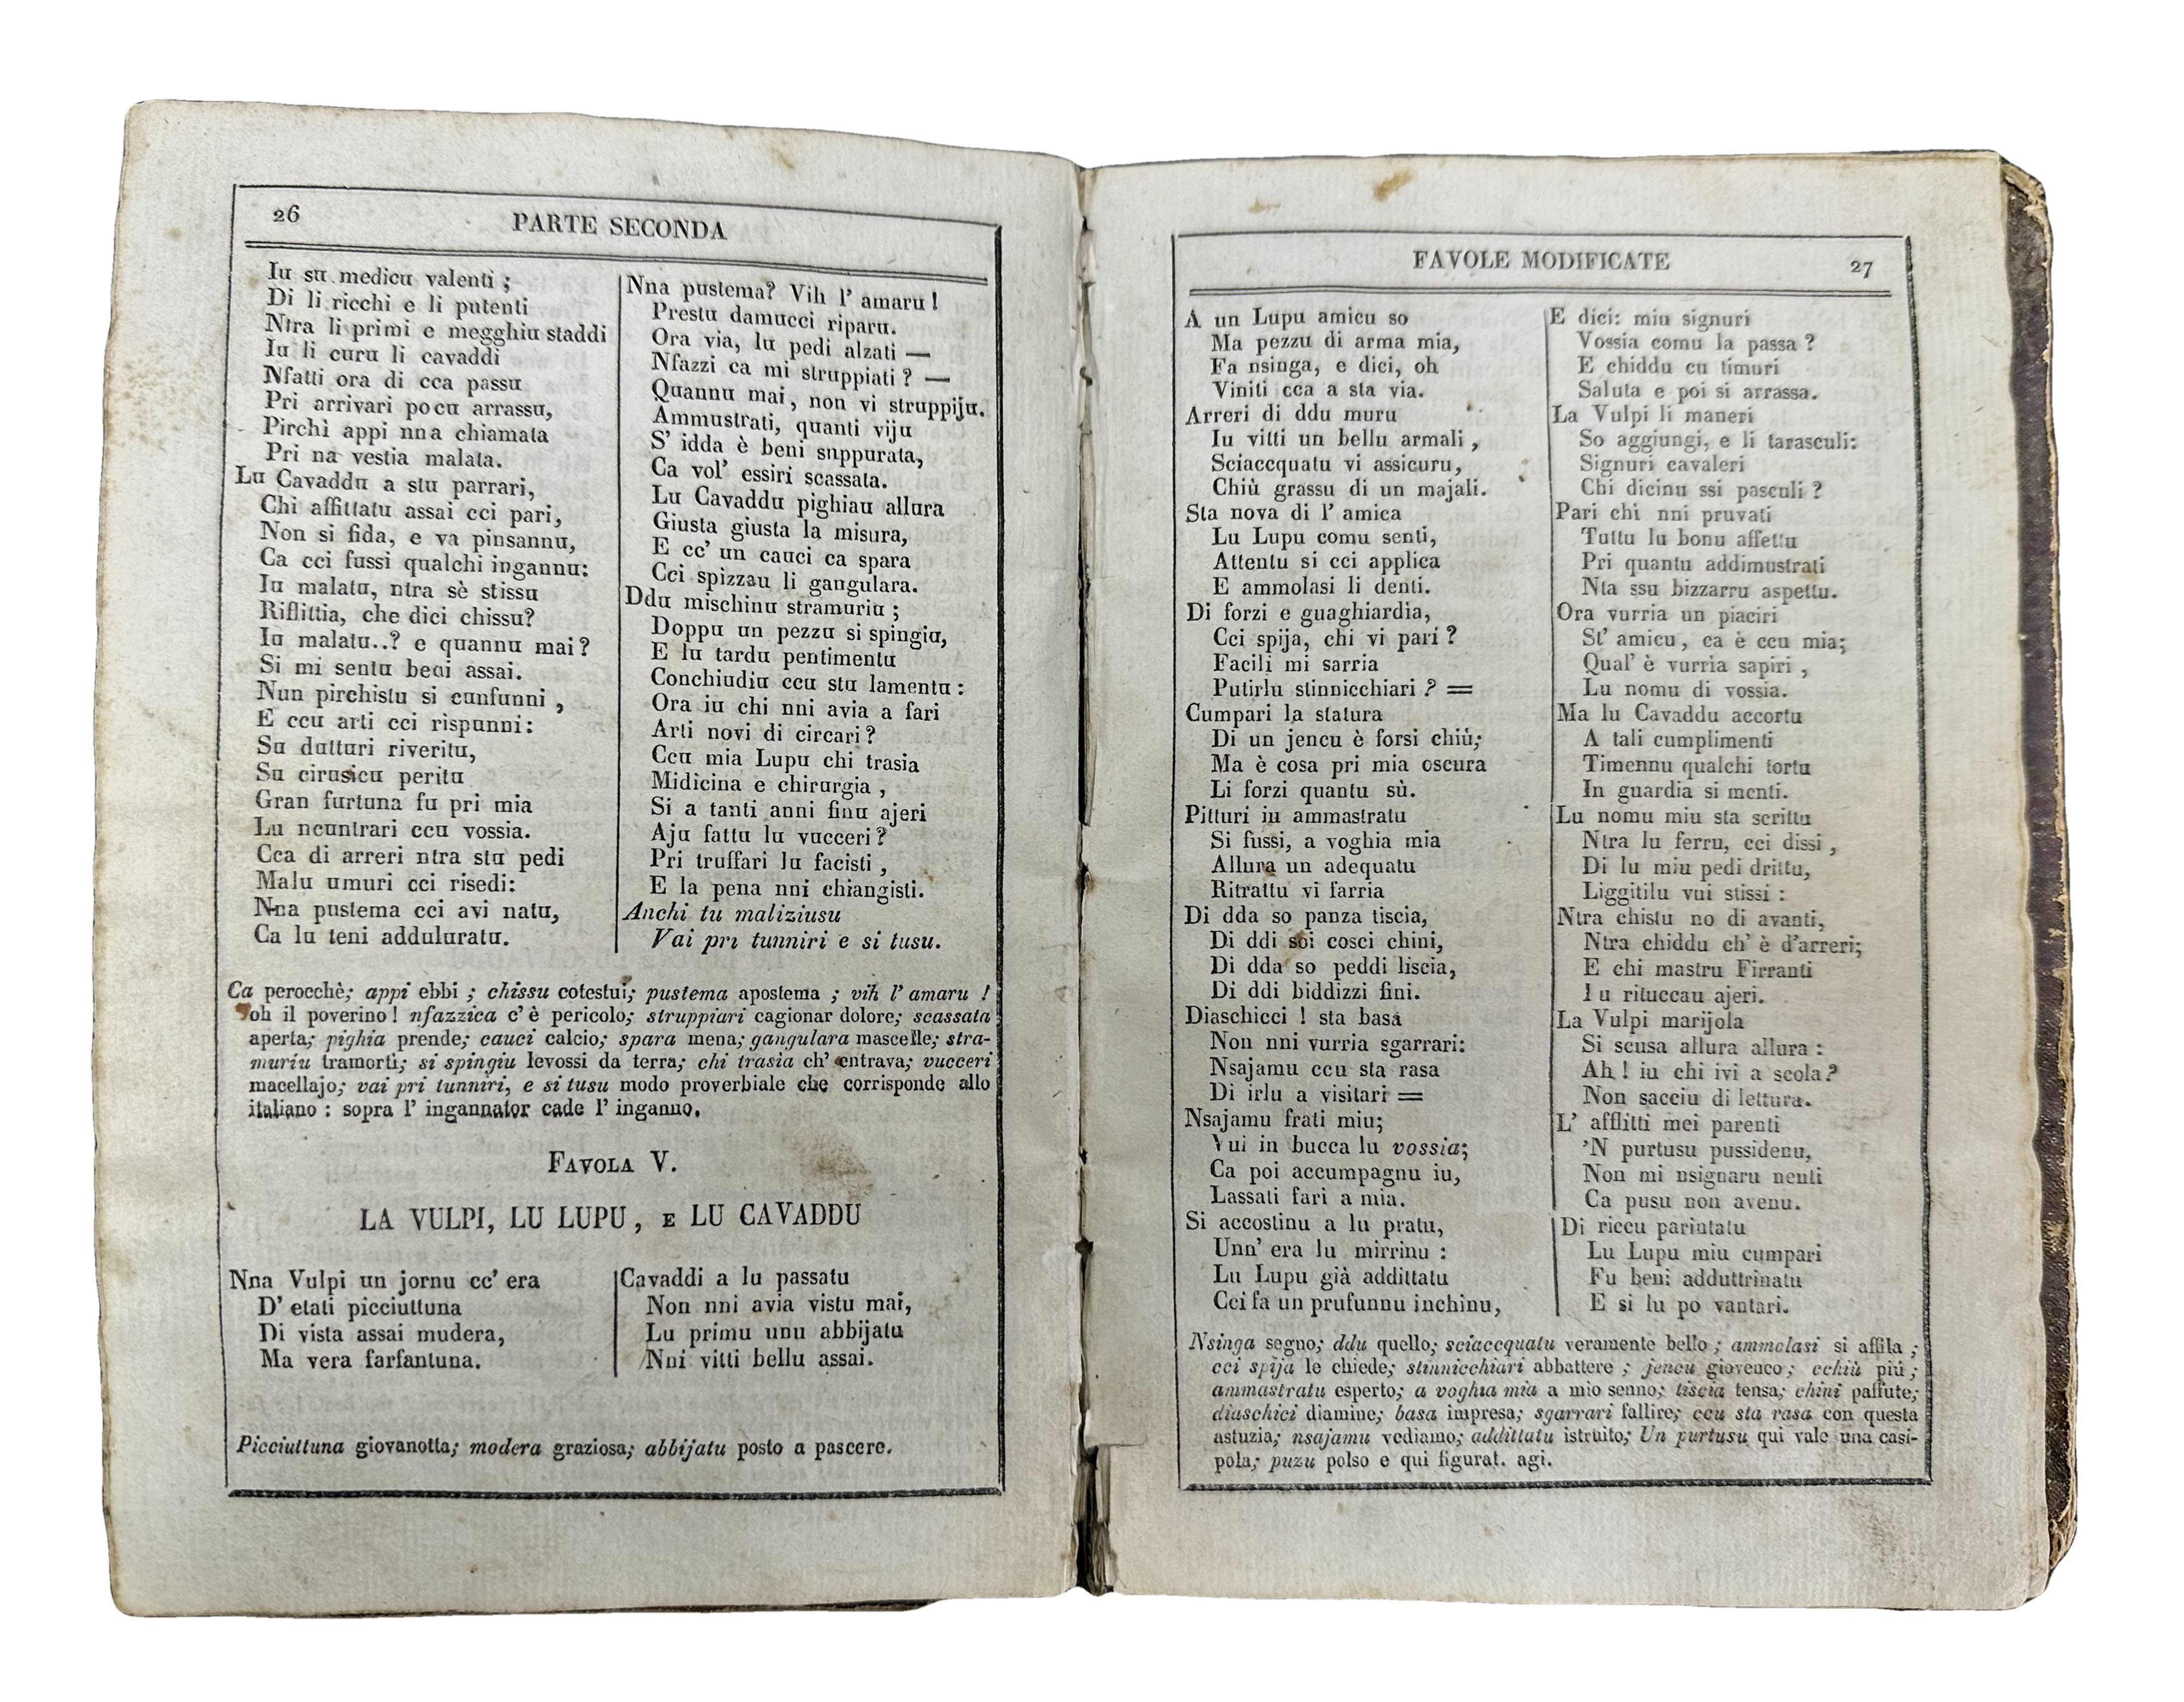 26
PARTE SECONDA
Iu su medicu valenti ;
Di li ricchi e li putenti
Ntra li primi e megghiu staddi
Iu li curu li cavaddi
Nfatti ora di cca passu
Pri arrivari pocu arrassu,
Pirchì appi nna chiamata
Pri na vestia malata.
Lu Cavaddu a stu parrari,
Chi affittatu assai cci pari,
Non si fida, e va pinsannu,
Ca cci fussi qualchi ingannu:
Iu malatu, ntra sè stissu
Riflittia, che dici chissu?
Iu malatu..? e quannu mai?
Si mi sentu beni assai.
Nun pirchistu si cunfunni ,
E ccu arti cci rispunni:
Su dutturi riveritu,
Su cirusicu peritu
Gran furtuna fu pri mia
Lu ncuntrari ccu vossia.
Cca di arreri ntra stu pedi
Malu umuri cci risedi:
Nna pustema cci avi natu,
Ca lu teni adduluratu.
Nna pustema? Vih l' amaru !
Prestu damucci riparu.
Ora via, lu pedi alzati —
Nfazzi ca mi struppiati ? —
Quannu mai, non vi struppiju.
Ammustrati, quanti viju
S' idda è beni suppurata,
Ca vol' essiri scassata.
Lu Cavaddu pighiau allura
Giusta giusta la misura,
E cc' un cauci ca spara
Cci spizzau li gangulara.
Ddu mischinu stramuriu ;
Doppu un pezzu si spingiu,
E lu tardu pentimentu
Conchiudiu ccu stu lamentu :
Ora iu chi nni avia a fari
Arti novi di circari?
Ccu mia Lupu chi trasia
Midicina e chirurgia ,
Si a tanti anni finu ajeri
Aju fattu lu vucceri?
Pri truffari lu facisti ,
E la pena nni chiangisti.
Anchi tu maliziusu
Vai pri tunniri e si tusu.
Ca perocchè; appi ebbi ; chissu cotestui; pustema apostema ; vih l' amaru !
oh il poverino ! nfazzica c' è pericolo; struppiari cagionar dolore; scassata
aperta; pighia prende; cauci calcio; spara mena; gangulara mascelle; stra-
muriu tramortì; si spingiu levossi da terra; chi trasia ch' entrava; vucceri
macellajo; vai pri tunniri, e si tusu modo proverbiale che corrisponde allo
italiano : sopra l' ingannator cade l' inganno.
FAVOLA V.
LA VULPI, LU LUPU , E LU CAVADDU
Nna Vulpi un jornu cc' era
D' etati picciuttuna
Di vista assai mudera,
Ma vera farfantuna.
Cavaddi a lu passatu
Non nni avia vistu mai,
Lu primu unu abbijatu
Nni vitti bellu assai.
Picciuttuna giovanotta; modera graziosa; abbijatu posto a pascere.
FAVOLE MODIFICATE
27
A un Lupu amicu so
Ma pezzu di arma mia,
Fa nsinga, e dici, oh
Viniti cca a sta via.
Arreri di ddu muru
Iu vitti un bellu armali ,
Sciaccquatu vi assicuru,
Chiù grassu di un majali.
Sta nova di l' amica
Lu Lupu comu senti,
Attentu si cci applica
E ammolasi li denti.
Di forzi e guaghiardia,
Cci spija, chi vi pari ?
Facili mi sarria
Putirlu stinnicchiari ? =
Cumpari la statura
Di un jencu è forsi chiù;
Ma è cosa pri mia oscura
Li forzi quantu sù.
Pitturi iu ammastratu
Si fussi, a voghia mia
Allura un adequatu
Ritrattu vi farria
Di dda so panza tiscia,
Di ddi soi cosci chini,
Di dda so peddi liscia,
Di ddi biddizzi fini.
Diaschicci ! sta basa
Non nni vurria sgarrari:
Nsajamu ccu sta rasa
Di irlu a visitari =
Nsajamu frati miu;
Vui in bucca lu vossia;
Ca poi accumpagnu iu,
Lassati fari a mia.
Si accostinu a lu pratu,
Unn' era lu mirrinu :
Lu Lupu già addittatu
Cci fa un prufunnu inchinu,
E dici: miu signuri
Vossia comu la passa ?
E chiddu cu timuri
Saluta e poi si arrassa.
La Vulpi li maneri
So aggiungi, e li tarasculi:
Signuri cavaleri
Chi dicinu ssi pasculi ?
Pari chi nni pruvati
Tuttu lu bonu affettu
Pri quantu addimustrati
Nta ssu bizzarru aspettu.
Ora vurria un piaciri
St' amicu , ca è ccu mia;
Qual' è vurria sapiri ,
Lu nomu di vossia.
Ma lu Cavaddu accortu
A tali cumplimenti
Timennu qualchi tortu
In guardia si menti.
Lu nomu miu sta scrittu
Ntra lu ferru, cci dissi ,
Di lu miu pedi drittu,
Liggitilu vui stissi :
Ntra chistu no di avanti,
Ntra chiddu ch' è d'arreri;
E chi mastru Firranti
Iu rituccau ajeri.
La Vulpi marijola
Si scusa allura allura :
Ah ! iu chi ivi a scola?
Non sacciu di lettura.
L' afflitti mei parenti
'N purtusu pussidenu,
Non mi nsignaru nenti
Ca pusu non avenu.
Di riccu parintatu
Lu Lupu miu cumpari
Fu beni adduttrinatu
E si lu po vantari.
Nsinga segno; ddu quello; sciaccquatu veramente bello ; ammolasi si affila ;
cci spija le chiede; stinnicchiari abbattere ; jencu giovenco ; cchiù più ;
ammastratu esperto; a voghia mia a mio senno; tiscia tensa; chini paffute;
diaschici diamine; basa impresa; sgarrari fallire; ccu sta rasa con questa
astuzia; nsajamu vediamo; addittatu istruito; Un purtusu qui vale una casi-
pola; puzu polso e qui figurat. agi.